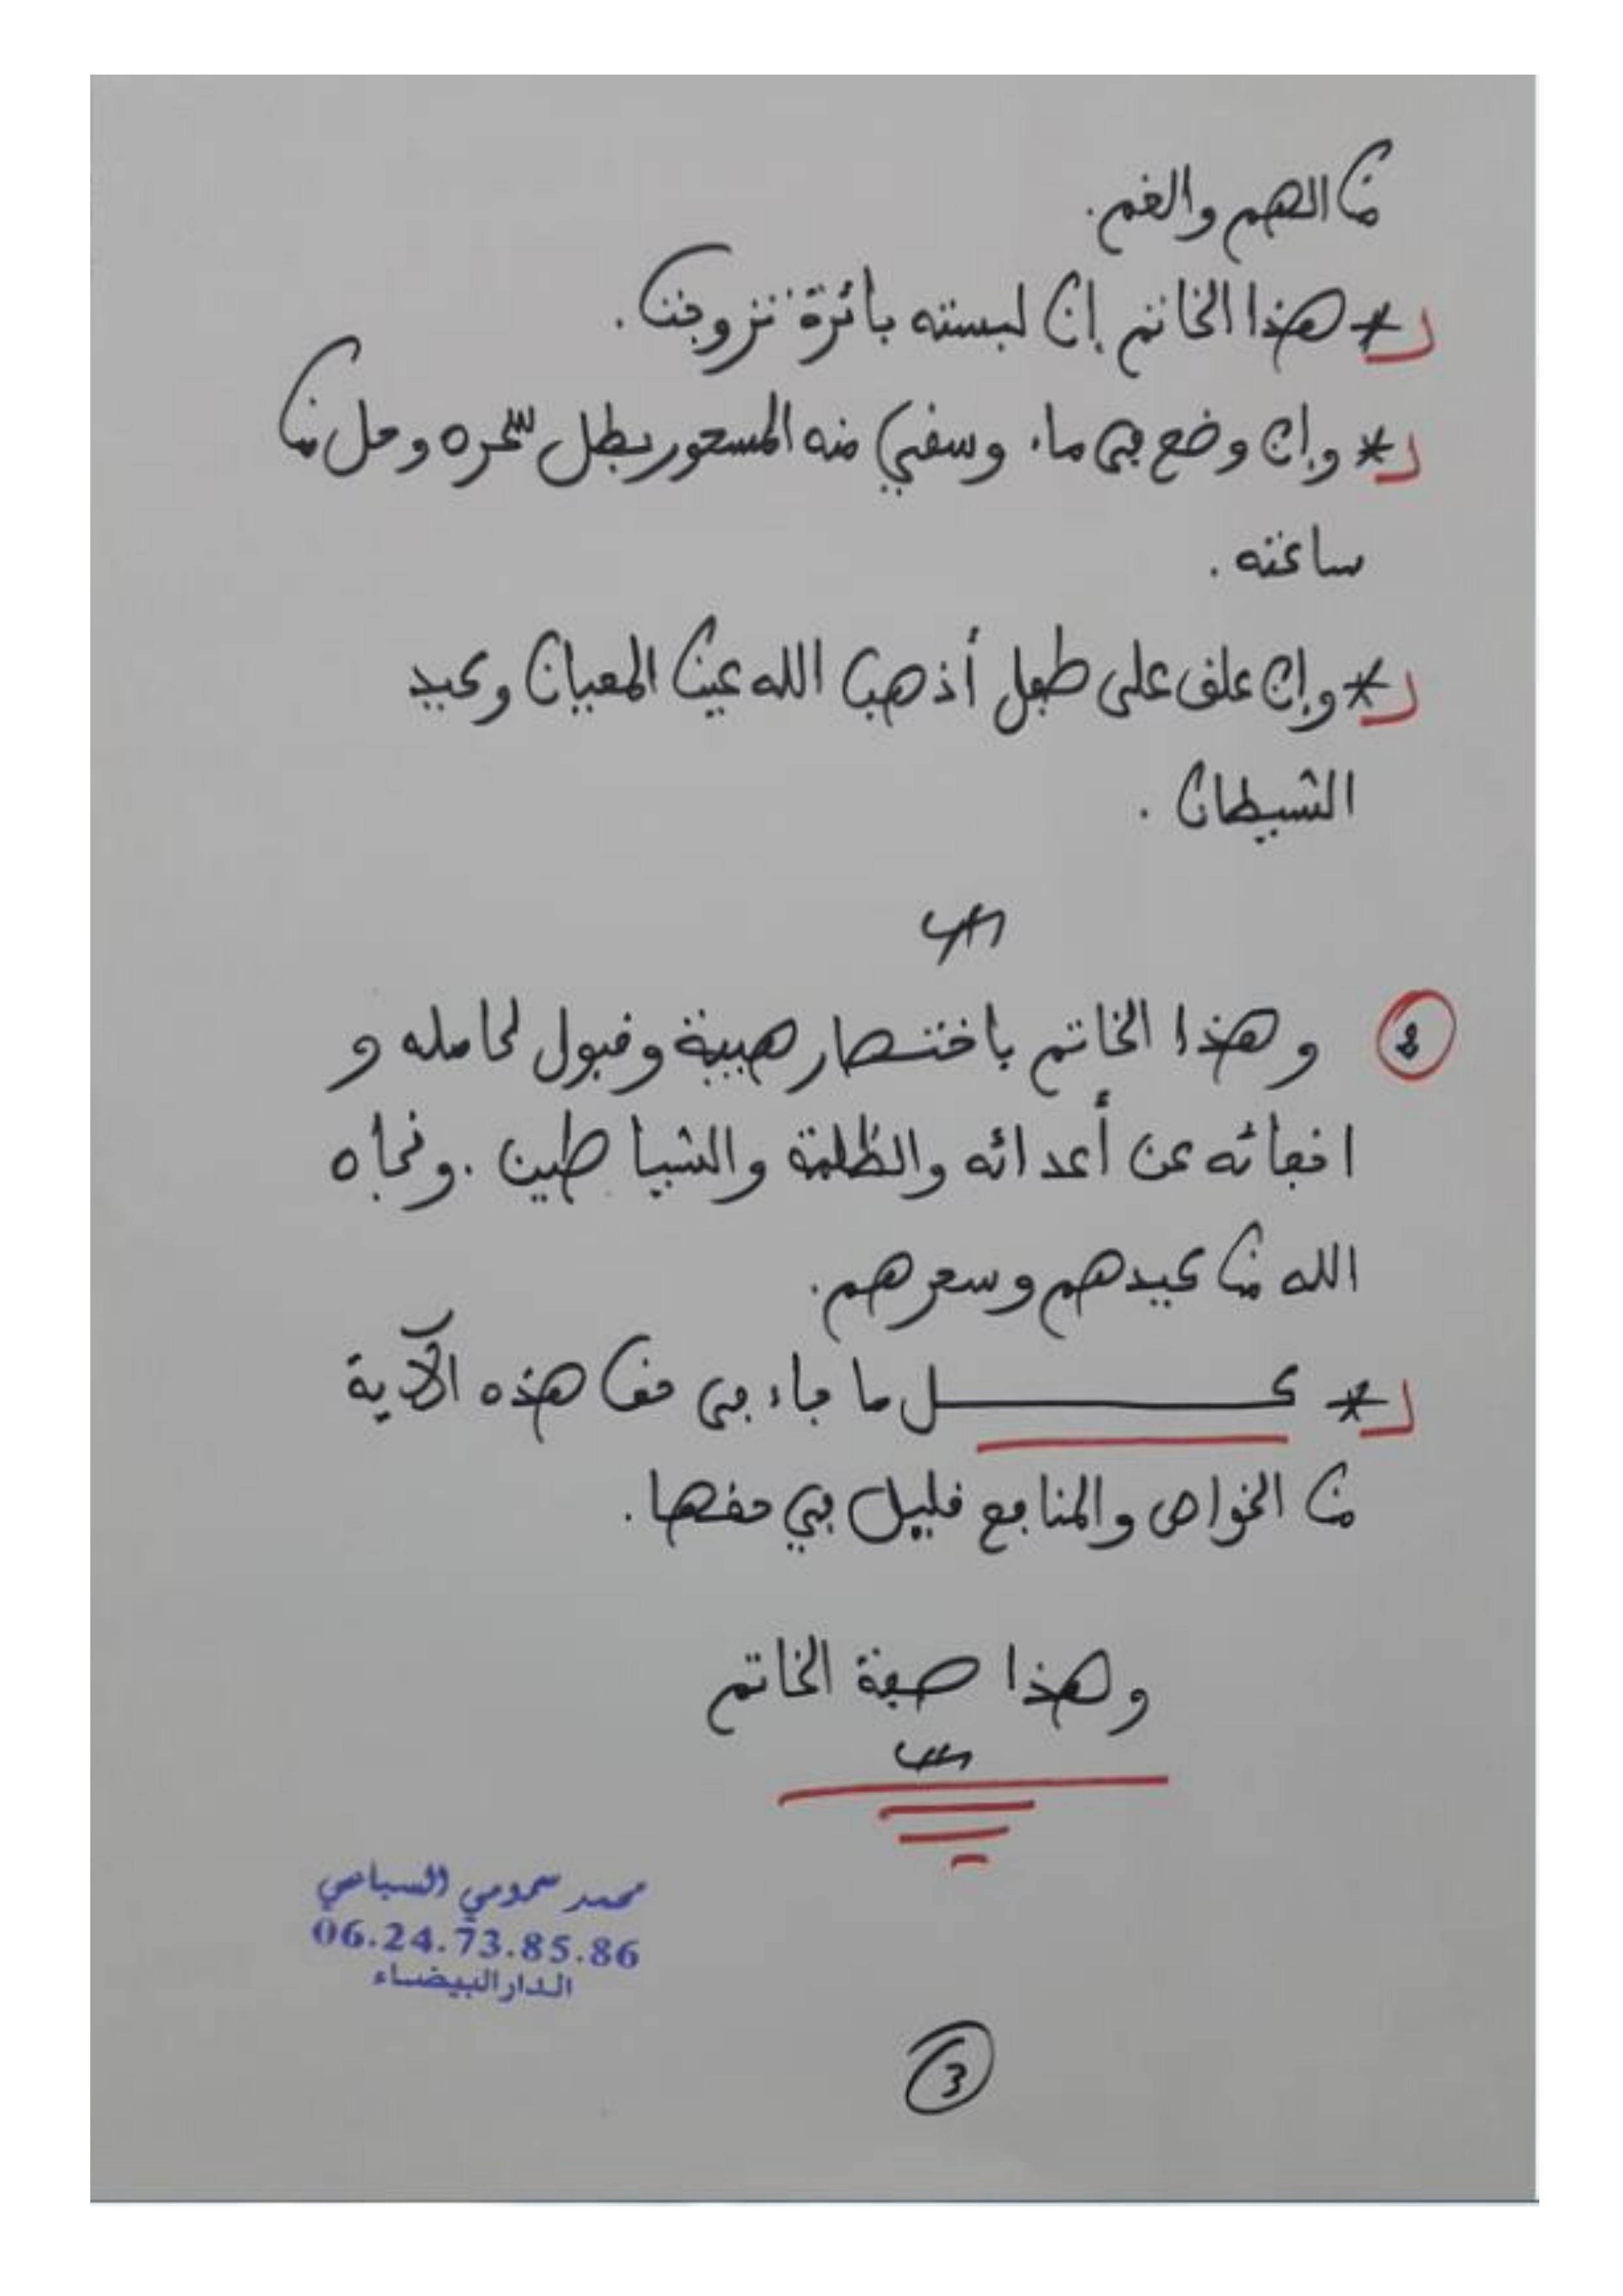 من الهم والغم.
* هذا الخاتم إن لبسته بائرة تزوجت.
* وإن وضع في ماء وسقي منه المسحور بطل سحره وحل من
ساعته.
* وإن علق على طفل أذهب الله عين المعيان وكيد
الشيطان.
وهذا الخاتم باختصار هيبة وقبول لحامله و
اخفائه عن أعدائه والظلمة والشياطين. ونجاه
الله من كيدهم وسحرهم.
* كل ما جاء في حق هذه الآية
من الخواص والمنافع قليل في حقها.
وهذا صفة الخاتم
محمد سمومي السباعي
06.24.73.85.86
الدار البيضاء
3